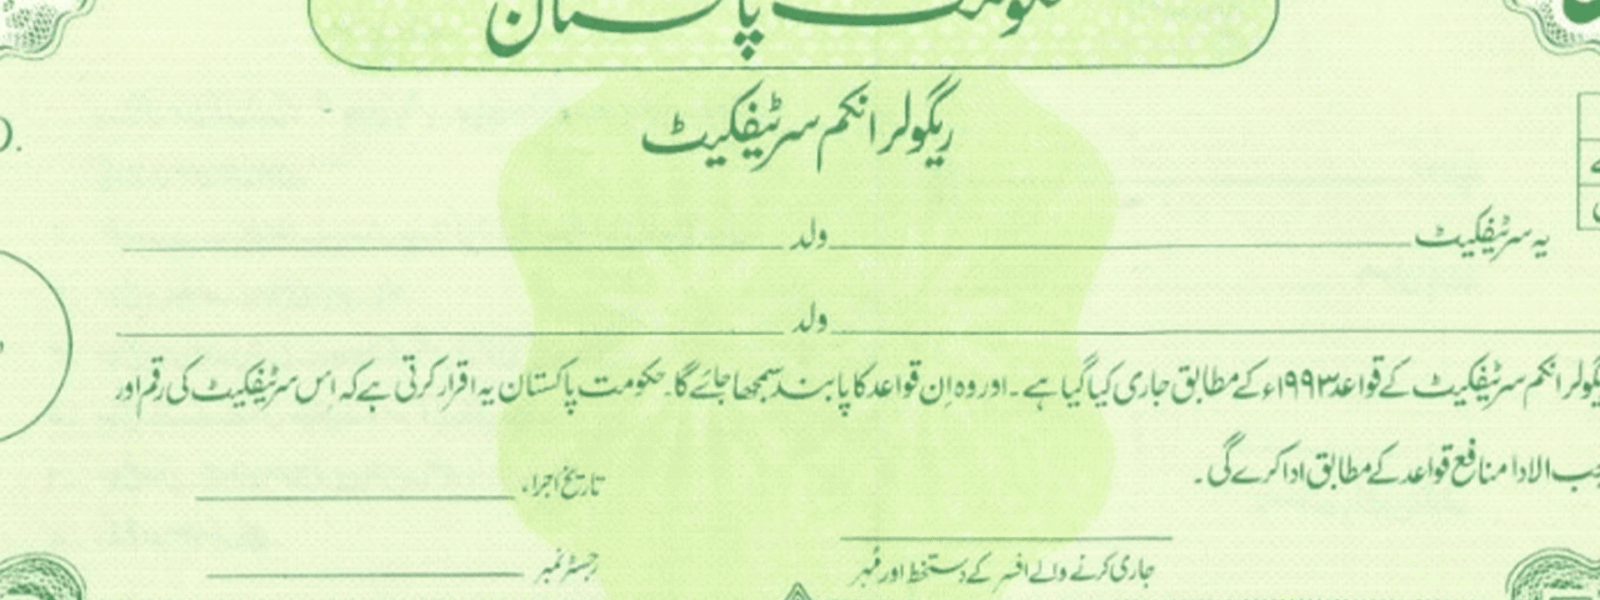 حکومت پاکستان
ریگولر انکم سرٹیفکیٹ
یہ سرٹیفکیٹ ولد
ولد
ریگولر انکم سرٹیفکیٹ کے قواعد ۱۹۹۳ء کے مطابق جاری کیا گیا ہے۔ اور وہ اِن قواعد کا پابند سمجھا جائے گا۔ حکومت پاکستان یہ اقرار کرتی ہے کہ اس سرٹیفکیٹ کی رقم اور
واجب الادا منافع قواعد کے مطابق ادا کرے گی۔
تاریخ اجراء
جاری کرنے والے افسر کے دستخط اور مُہر
رجسٹر نمبر